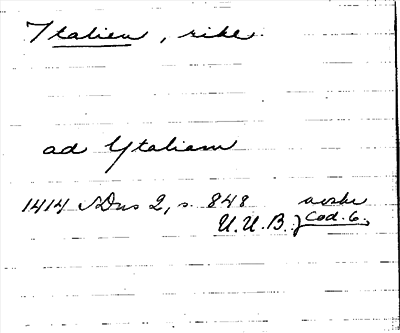 Italien, rike
ad Ytaliam
1414 SDns 2, s. 848 avskr
U.U.B., Cod. 6.